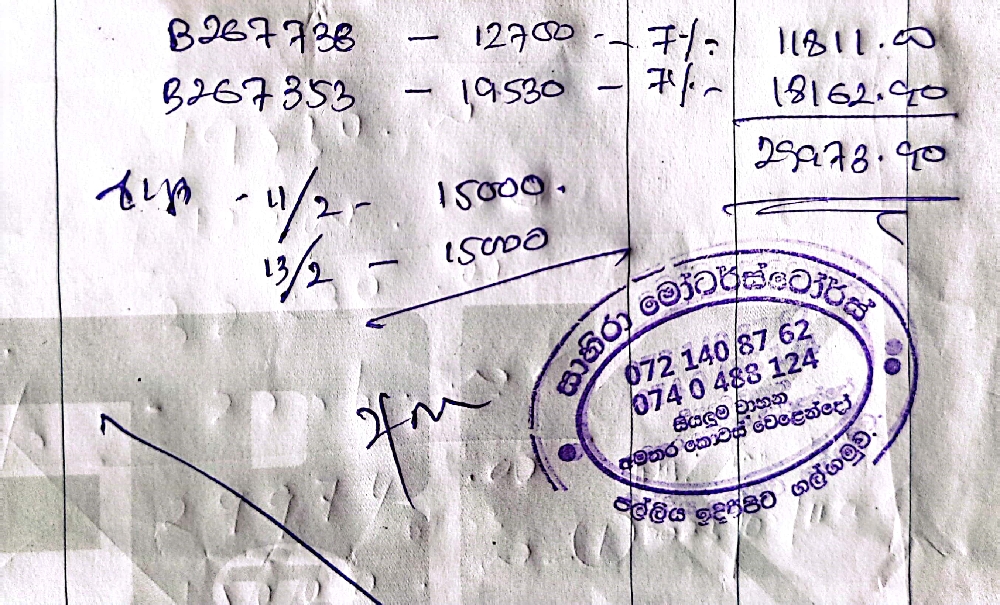 B267738 - 12700 - 7%. 11811.00
B267353 - 19530 - 7%. 18162.90
29973.90
- 11/2 - 15000.
13/2 - 15000
සාහිරා මෝටර්ස්ටෝර්ස්
072 140 87 62
074 0 488 124
සියළුම වාහන
අමතර කොටස් වෙළෙන්දෝ
පල්ලිය ඉදිරිපිට ගල්ගමුව.